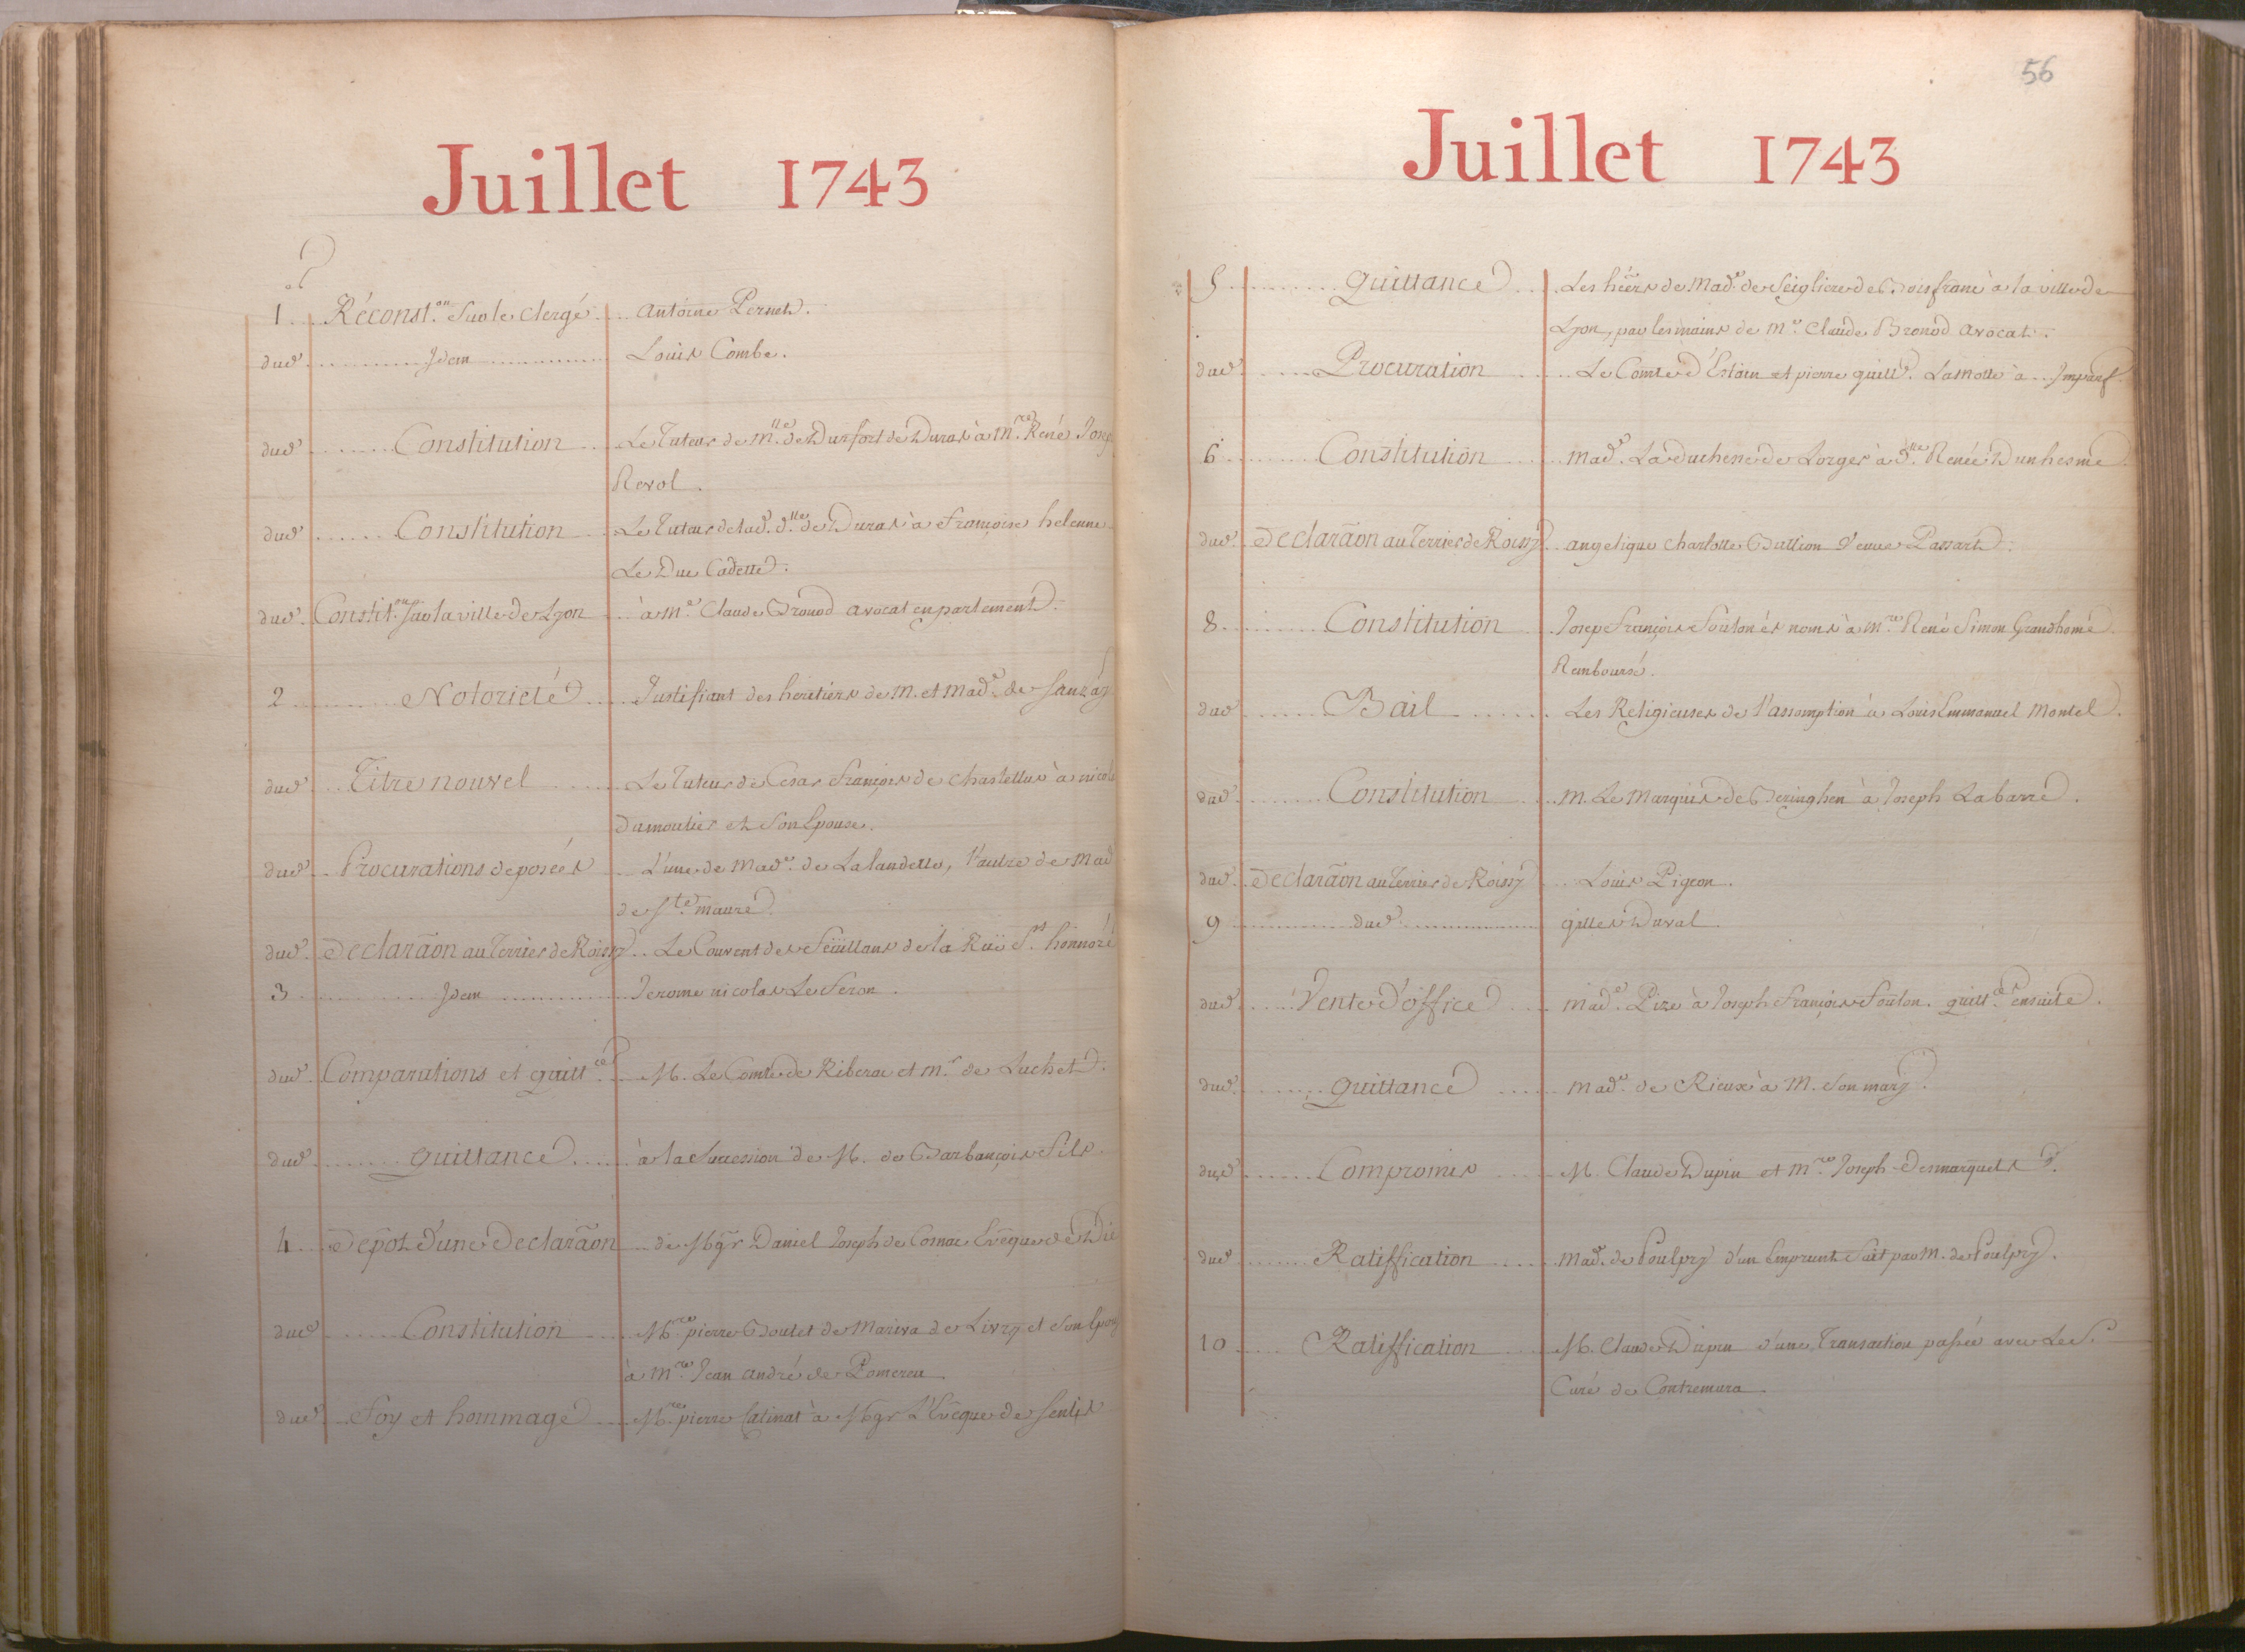 Juillet 1743
1 Réconst.on Sur le Clergé Antoine Pernet.
dud Idem Louis Combe.
dud Constitution Le Tuteur de M.lle de Durfort de Duras à M.re René Josep
Revol.
dud Constitution Le Tuteur de lad. d.lle de Duras à françoise helenne
Le Duc Cadette.
dud. Constit.on sur la ville de Lyon à M.e Claude Bronod avocat en parlement.
2 Notorieté Justifiant des heritiers de M. et Mad.e de Sanzay
dud Titre nouvel Le Tuteur de Cesar François de Chastellux à nicol
Dumoutier et Son Epouse.
dud Procurations deposées L'une de Mad.e de Lalandelle, l'autre de Mad
de S.te maure.
dud. Declarãon au Terrier de Roissy Le Couvent des Feüillans de la Rüe S.t honnoré
3 Idem Jerome nicolas Le Feron.
dud. Comparutions et quitt.ce M. Le Comte de Riberac et M.r de Luchet.
dud Quittance à la Succession de M. de Barbançois Fils.
4 Depot d'une Declarãon de Mgr Daniel Joseph de Cosnac Evêque de Die
dud Constitution M.re pierre Boutet de Mariva de Livry et Son Epou
à M.re Jean André de Pomereu
dud Foy et hommage M.re pierre Catinat à Mgr L'Evêque de Senlis
56
Juillet 1743
5 Quittance Les hers de Mad.e de Seigliere de Boisfranc à la ville de
Lyon, par les mains de M.e Claude Bronod Avocat.
dud. Procuration Le Comte d'Estain et pierre guill. Lamotte à Imparf.
6 Constitution Mad.e La duchesse de Lorges à D.lle Renée Dunhesme
dud. Declarãon au Terrier de Roissy angelique Charlotte Bullion Veuve Passart.
8 Constitution Josep François Foüton és noms à M.re René Simon Grandhomé.
Remboursé.
dud Bail Les Religieuses de l'assomption à Louis Emmanuel Montel.
dud. Constitution M. Le Marquis de Beringhen à Joseph Labarre.
dud. Declarãon au Terrier de Roissy Louis Pigeon.
9 dud gilles Duval
dud. Vente d'office Mad.e Pize à Joseph François Foüton. quitt.ces ensuite.
dud. Quittance Mad.e de Rieux à M. Son mary.
dud. Compromis M. Claude Dupin et M.re Joseph Desmarquets
dud Ratiffication Mad. de Poulpry d'un Emprunt Fait par M. de Poulpry.
10 Ratiffication M. Claude Dupin d'une Transaction passée avec Le S.
Curé de Contremura